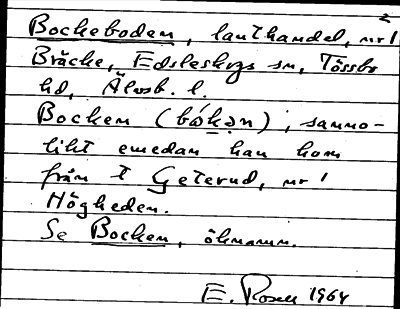 2
Bockeboden, lanthandel, nr 1
Bräcke, Edsleskogs sn, Tössbo
hd, Älvsb. l.
Bocken (bòkən), sanno-
likt emedan han kom
från t Geterud, nr 1
Högheden.
Se Bocken, öknamn.
E. Rosell 1964